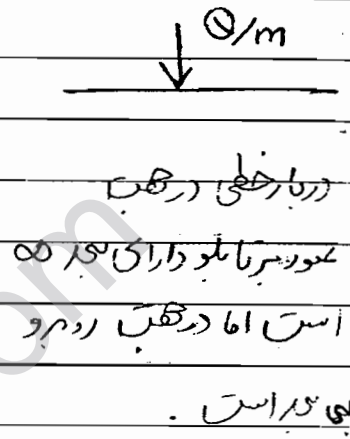 Q/m
در بار خطی در جهت
عمود بر تابلو دارای بعد ∞
است اما در جهت روبرو
بی بعد است .
om